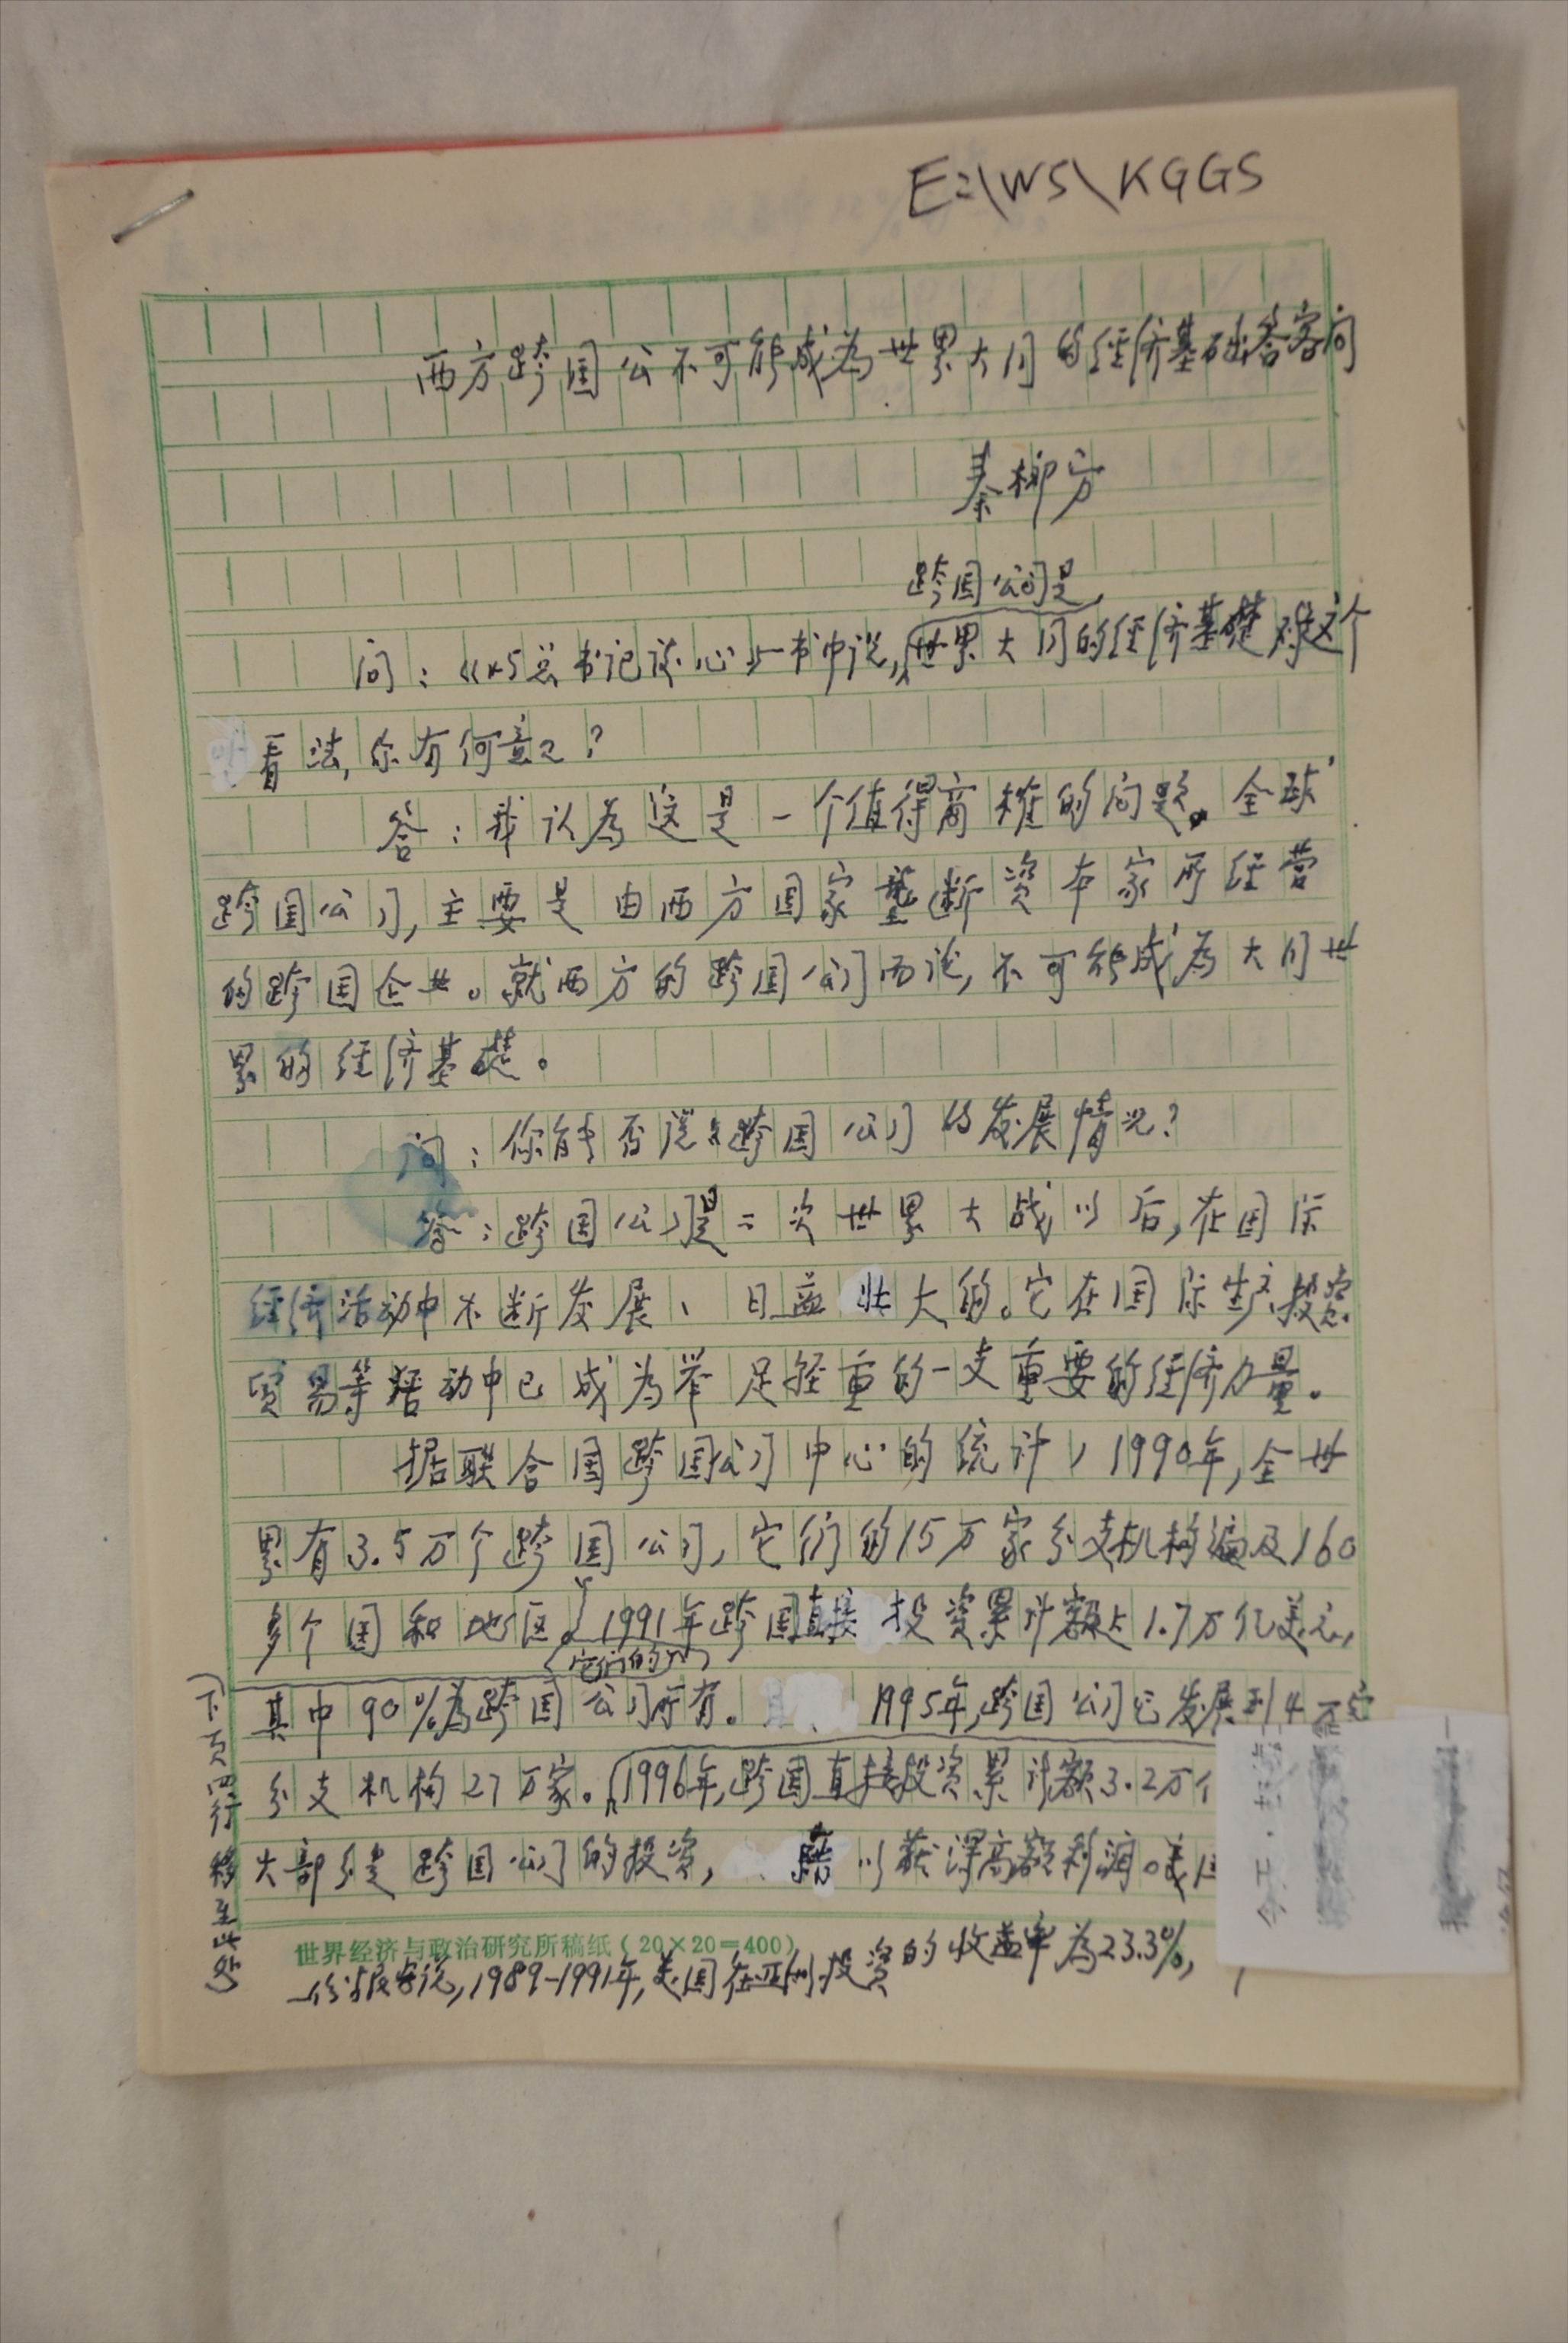 E:\WS\KGGS
西方跨国公不可能成为世界大同的经济基础答客问
秦柳方
跨国公司是
问：《与总书记谈心》一书中说，世界大同的经济基礎 对这个
看法，你有何意见？
答：我认为这是一个值得商榷的问题。全球
跨国公司，主要是由西方国家垄断资本家所经营
的跨国企业。就西方的跨国公司而论，不可能成为大同世
界的经济基礎。
问：你能否说说跨国公司的发展情况？
答：跨国公司是二次世界大战以后，在国际
经济活动中不断发展、日益壮大的。它在国际生产、投资
贸易等活动中已成为举足轻重的一支重要的经济力量。
据联合国跨国公司中心的统计，1990年，全世
界有3.5万个跨国公司，它们的15万家分支机构遍及160
多个国和地区。1991年跨国直接投资累计额占1.7万亿美元，
它们的
其中90%为跨国公司所有。1995年，跨国公司已发展到4万家
分支机构27万家。1996年，跨国直接投资累计额3.2万亿
大部分是跨国公司的投资，藉以获得高额利润。美国
世界经济与政治研究所稿纸（20×20=400）
一份报告说，1989-1991年，美国在亚洲投资的收益率为23.3%，
下页四行移至此处